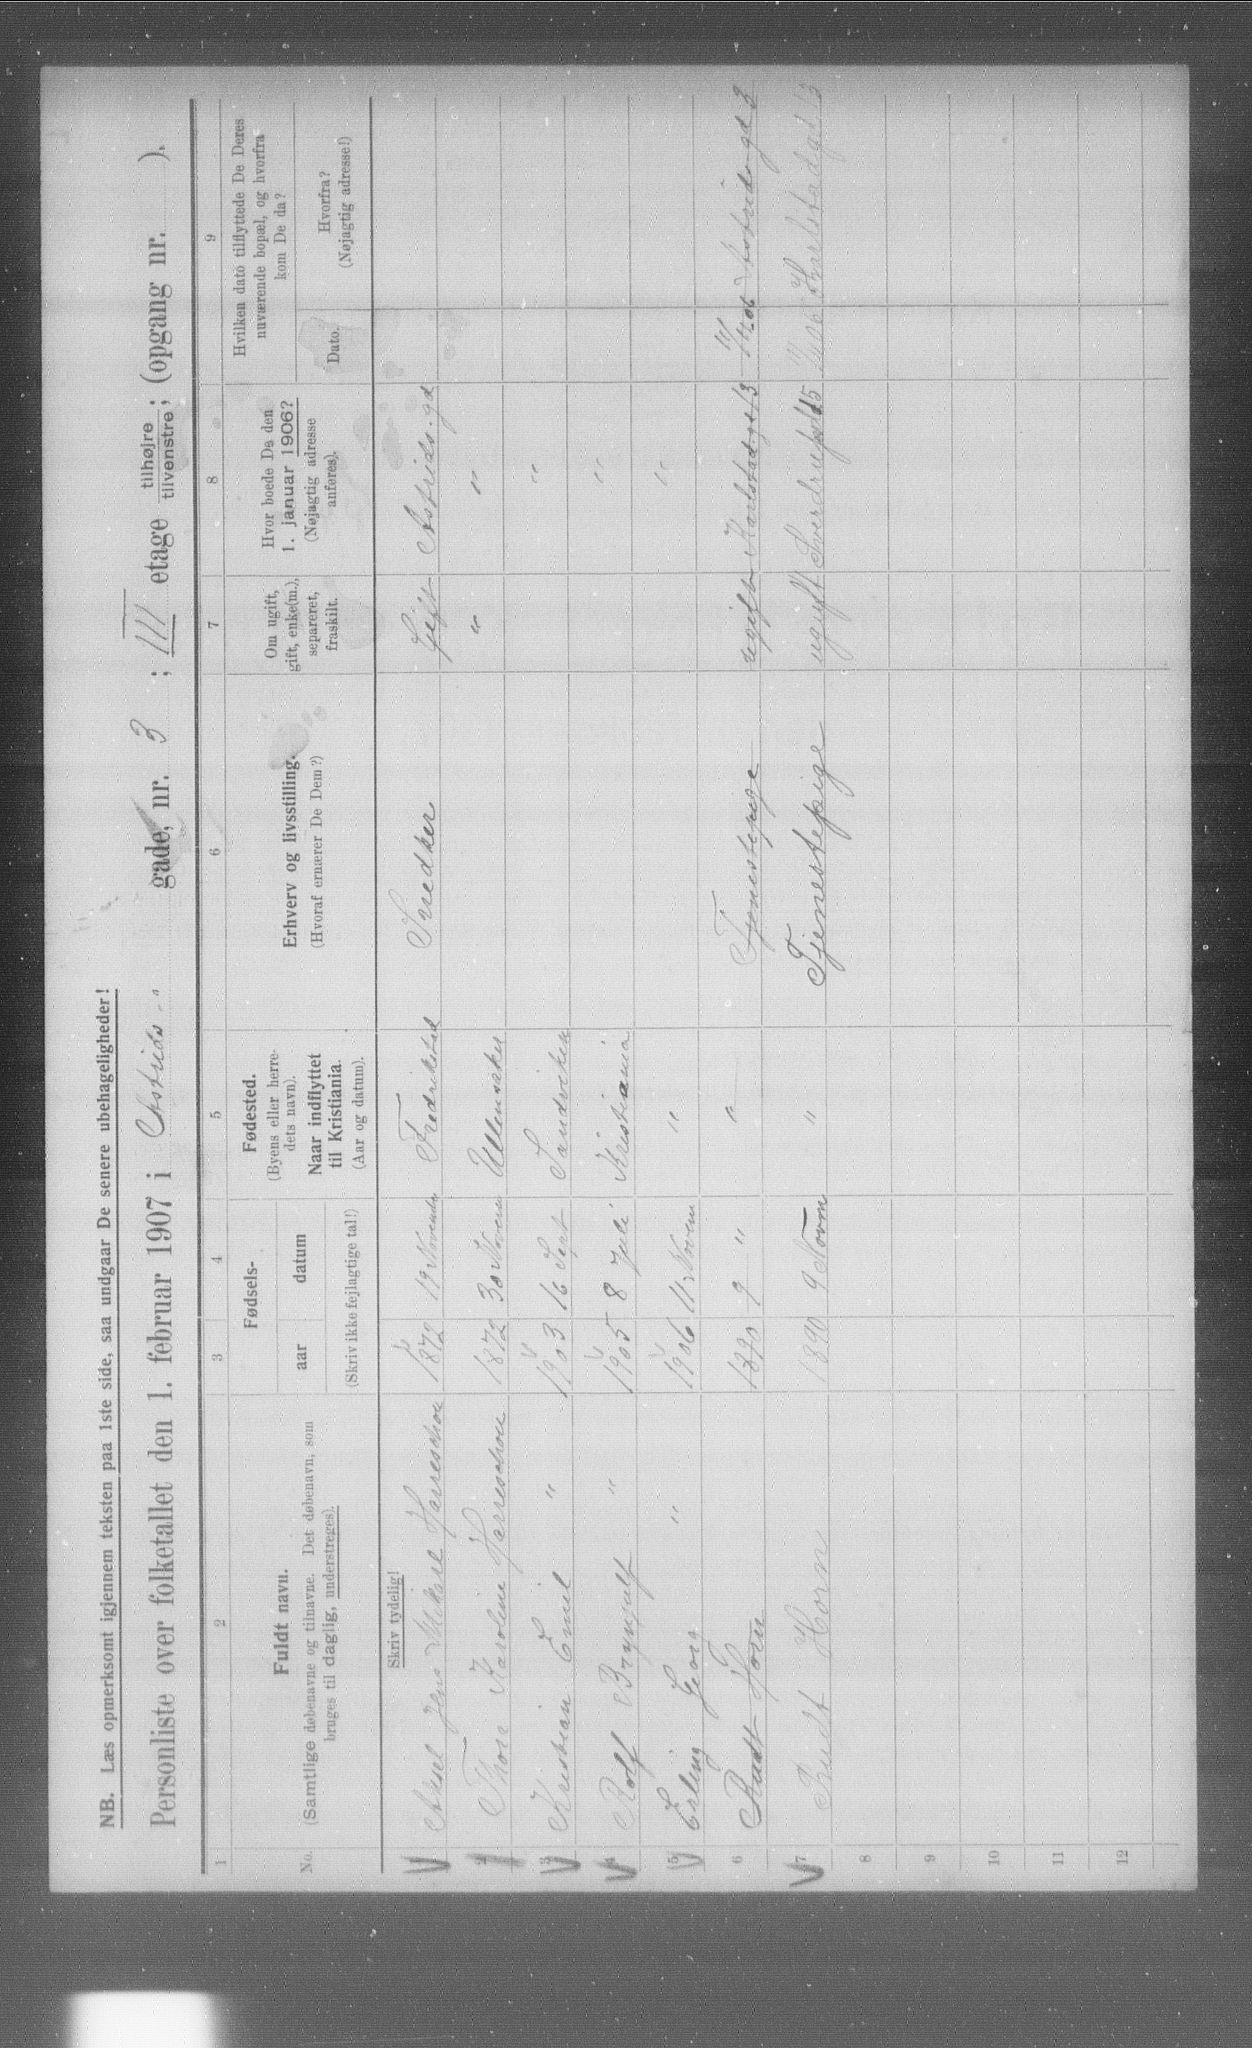 NB. Læs opmerksomt igjennem teksten paa 1ste side, saa undgaar De senere ubehageligheder!
Personliste over folketallet den 1. februar 1907 i Astrids - " gade, nr. 3 ; III etage tilhøjre tilvenstre; (opgang nr. ).
1 2 3 4 5 6 7 8 9
No. Fuldt navn. (Samtlige døbenavne og tilnavne. Det døbenavn, som bruges til daglig, understreges).
Fødsels- aar datum (Skriv ikke fejlagtige tal!)
Fødested. (Byens eller herredets navn). Naar indflyttet til Kristiania. (Aar og datum).
Erhverv og livsstilling. (Hvoraf ernærer De Dem?)
Om ugift, gift, enke(m.), separeret, fraskilt.
Hvor boede De den 1. januar 1906? (Nøjagtig adresse anføres).
Hvilken dato tilflyttede De Deres nuværende bopæl, og hvorfra kom De da?
Dato. Hvorfra? (Nøjagtig adresse!)
Skriv tydelig!
1 Aksel Jens Mikael Harreschou 1872 19 November Fredrikstad Snedker Gift Astrids. gd
2 Thora Karoline Harreschou 1872 30 Novem Ullensaker " "
3 Kristian Emil " 1903 16 Sept Sandviken "
4 Rolf Brynjulf " 1905 8 Juli Kristiania "
5 Erling Georg " 1906 11 Novem " "
6 Rudt Horn 1890 9 " " Tjenestepige ugift Karlstadgd 13 Astrids gd 3
7 Rudt Horn 1890 9 Novm " Tjenestepige ugift Sverdrupsgd 15 Karlstadgd 13
8
9
10
11
12